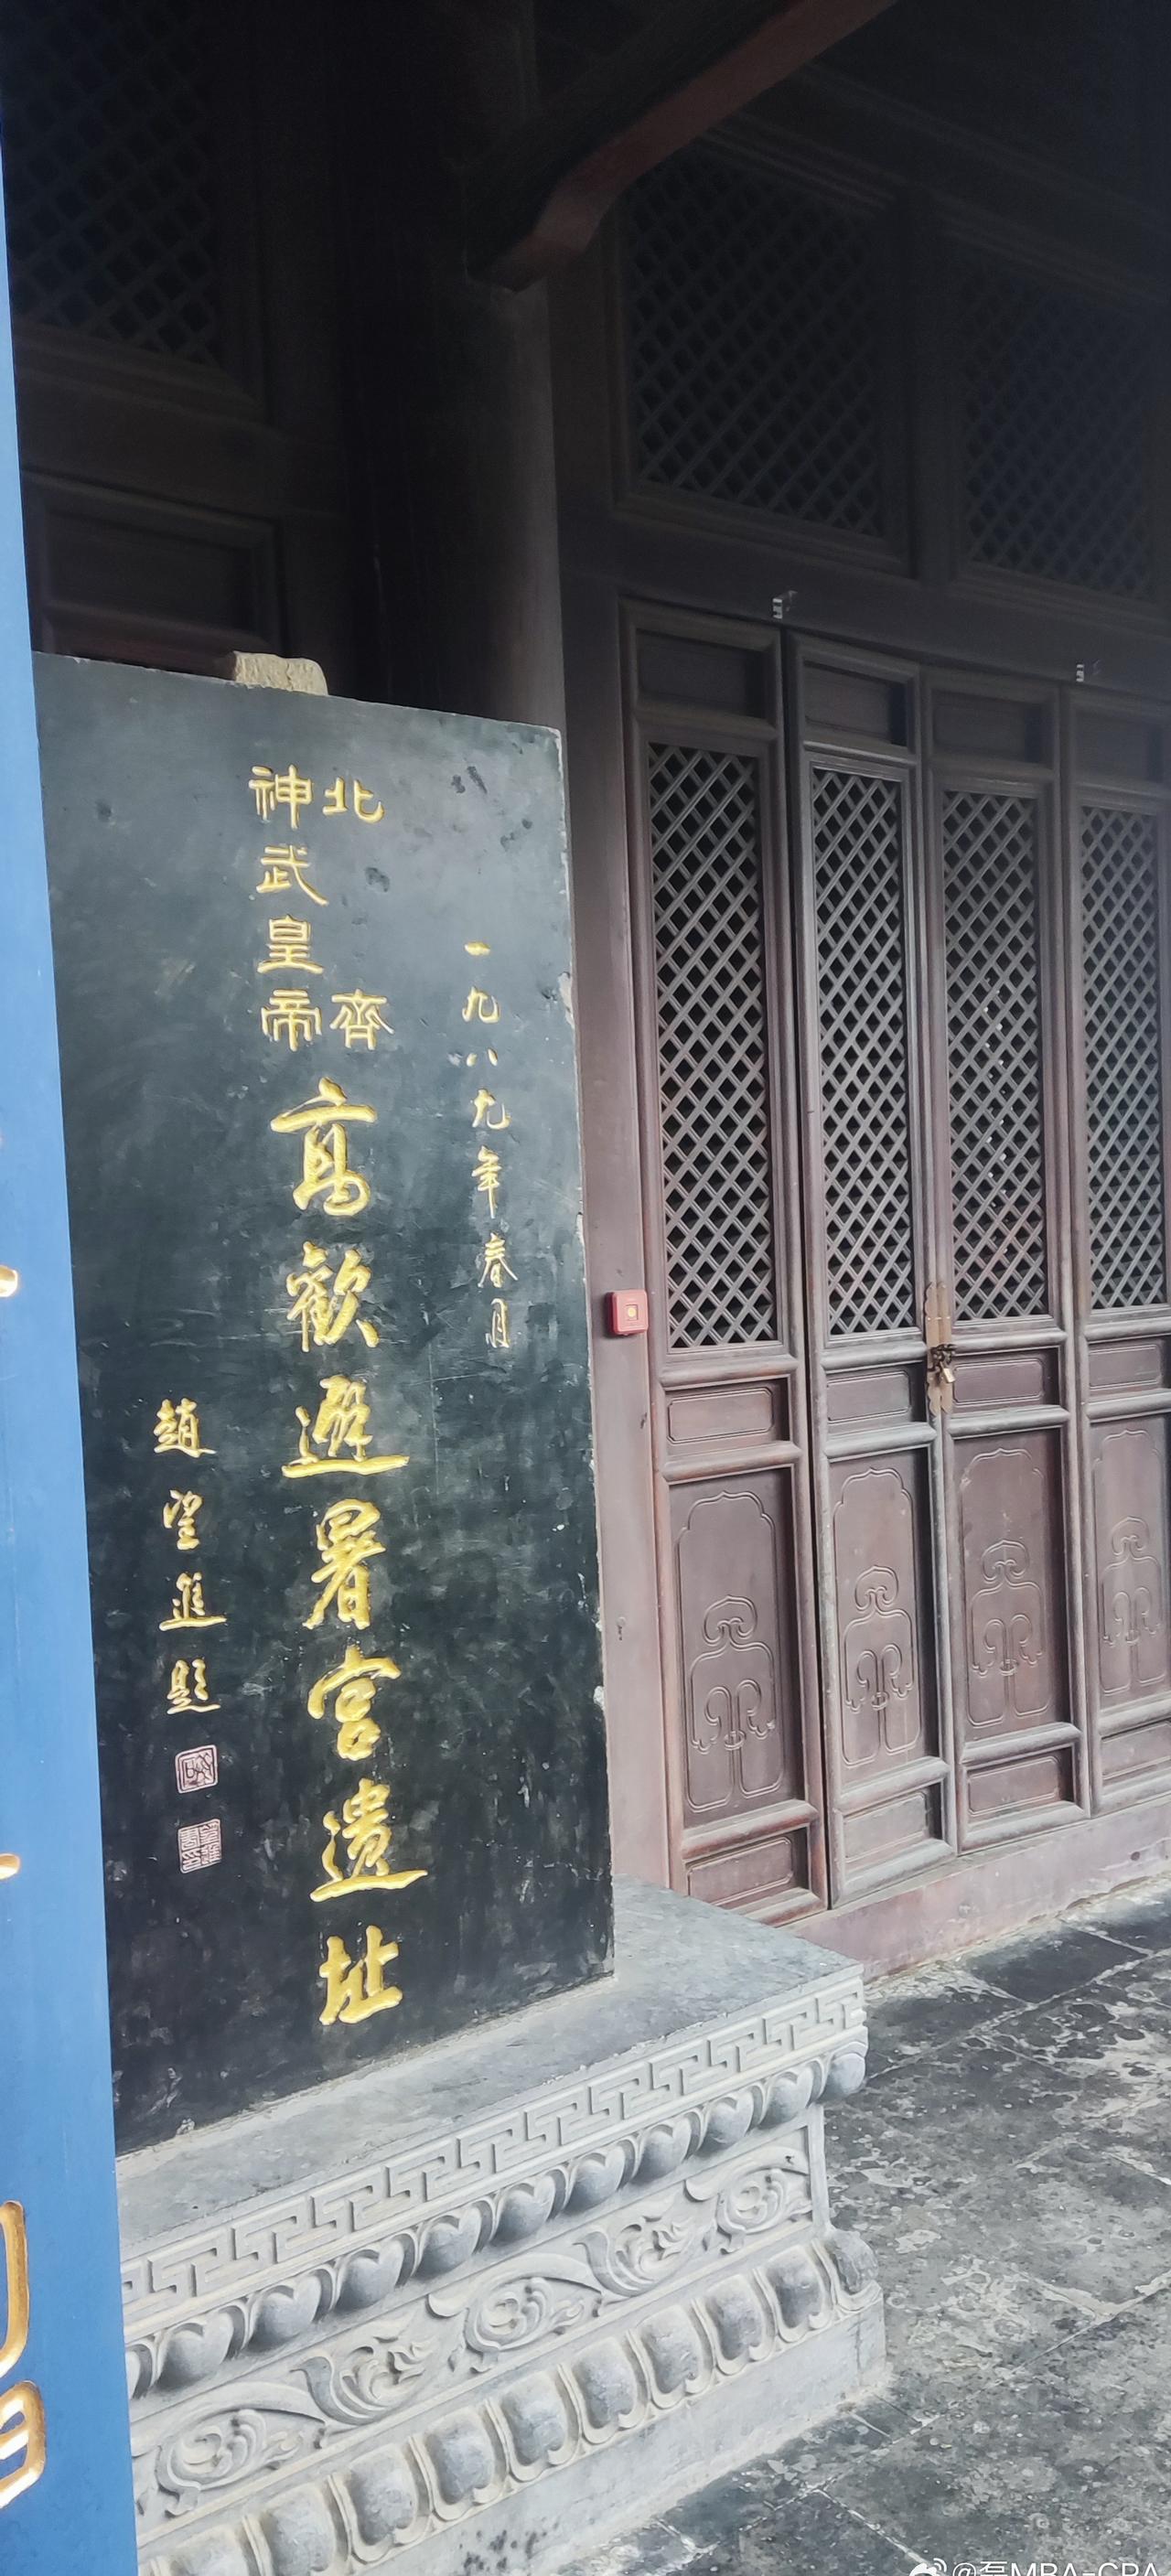 一九八九年春月
北齊
神武皇帝
高歡避暑宮遺址
趙望進題
@磊MBA-CPA